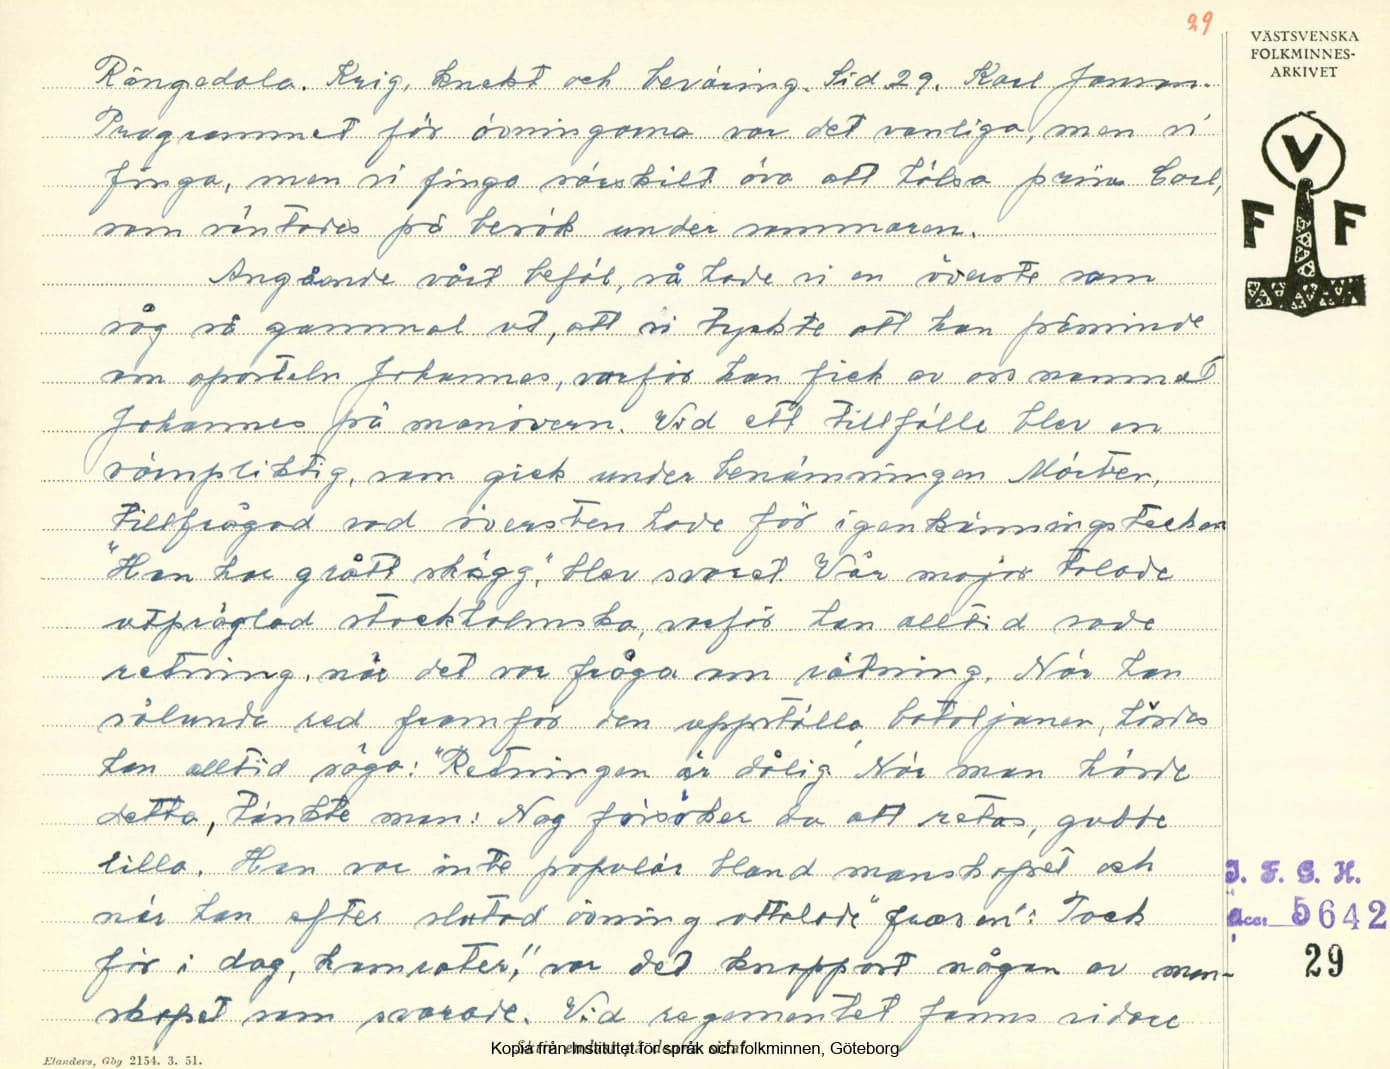 29
VÄSTSVENSKA
FOLKMINNES-
ARKIVET
V
F F
Rångedala. Krig, knekt och beväring. Sid 29. Karl Jonson.
Programmet för övningarna var det vanliga, men vi
finga, men vi finga särskilt öva att hälsa prins Carl,
som väntades på besök under sommaren.
Angående vårt befäl, så hade vi en överste som
såg så gammal ut, att vi tyckte att han påminde
om aposteln Johannes, varför han fick av oss namnet
Johannes på manövern. Vid ett tillfälle blev en
värnpliktig, som gick under benämningen Mårten,
tillfrågad vad översten hade för igenkänningstecken
"Han har grått skägg", blev svaret. Vår major talade
utpräglad stockholmska, varför han alltid sade
retning, när det var fråga om rätning. När han
sålunda red framför den uppställa bataljonen, hördes
han alltid säga: "Retningen är dålig. När man hörde
detta, tänkte man: Nog försöker du att retas, gubbe
lilla. Han var inte populär bland manskapet och
när han efter slutad övning uttalade "fraser": Tack
för i dag, kamrater!" var det knappast någon av man-
skapet som svarade. Vid regementet fanns vidare
I. F. G. H.
Acc. 5642
29
Elanders, Gbg 2154. 3. 51.
Kopia från Institutet för språk och folkminnen, Göteborg